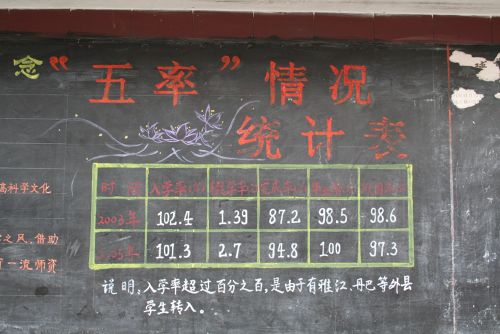 念
“五率”情况
统计表
高科学文化
之风、借助
一流师资
时 入学率 学率
2003年 102.4 1.39 87.2 98.5 98.6
年 101.3 2.7 94.8 100 97.3
说明：入学率超过百分之百，是由于有雅江、丹巴等外县
学生转入。